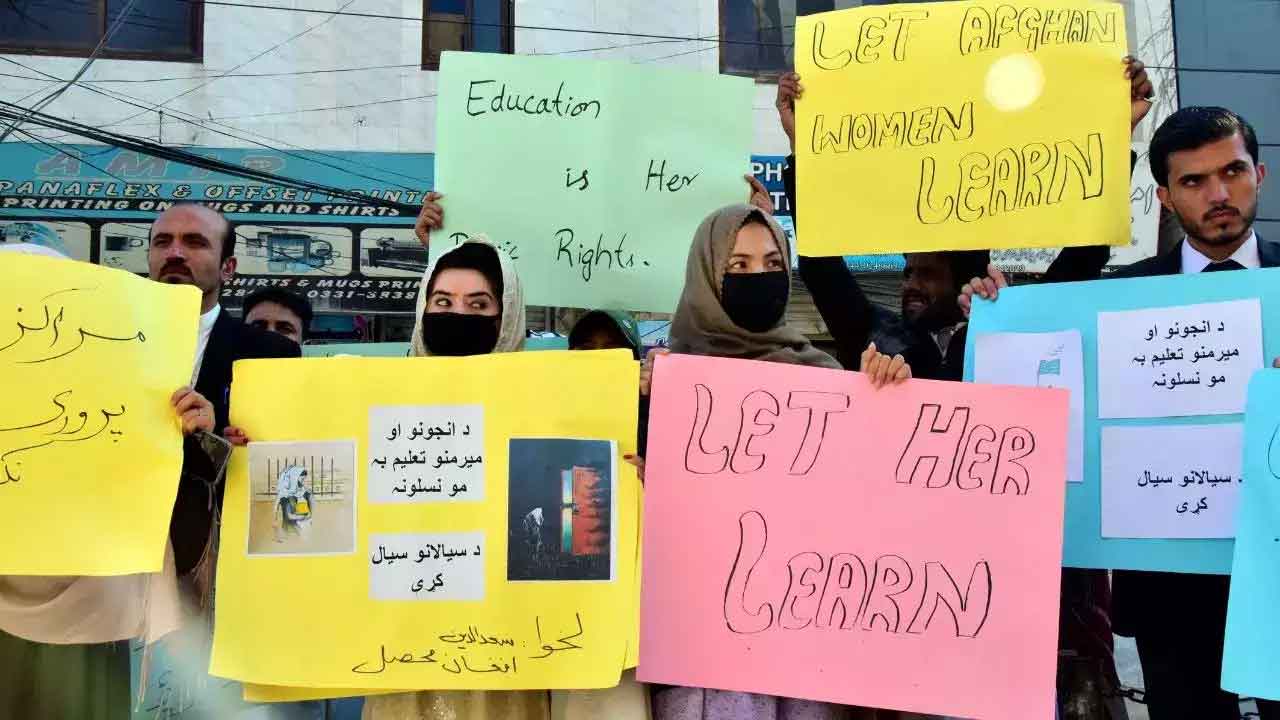 LET AFGHAN
WOMEN
LEARN
Education
is Her
Rights.
AMIR
PANAFLEX & OFFSET PRINTI
PRINTING ON MUGS AND SHIRTS
SHIRTS & MUGS PRI
0331-
مراکز
پروری
د انجونو او
میرمنو تعلیم به
مو نسلونه
د سیالانو سیال
کړي
لخوا: سعدالدین
افغان محصل
LET HER
LEARN
د انجونو او
میرمنو تعلیم به
مو نسلونه
د سیالانو سیال
کړي